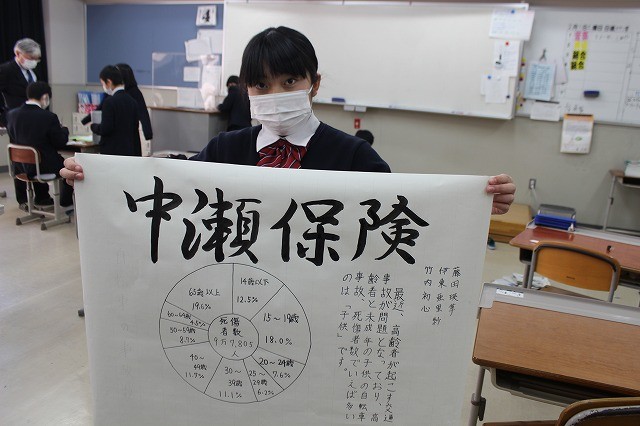 中瀬保険
藤田瑛夢
伊東亜里紗
竹内初心
最近、高齢者が起こす交通
事故が問題となっており、高
齢者と未成年の子供の自転車
事故、死傷者数でいえば多い
のは「子供」です。
死傷
者数
9万7,805
人
14歳以下
12.5%
15〜19歳
18.0%
20〜24歳
7.6%
25〜
29歳
6.2%
30〜
39歳
11.1%
40〜
49歳
11.7%
50〜59歳
8.7%
60〜64歳
4.5%
65歳以上
19.6%
4